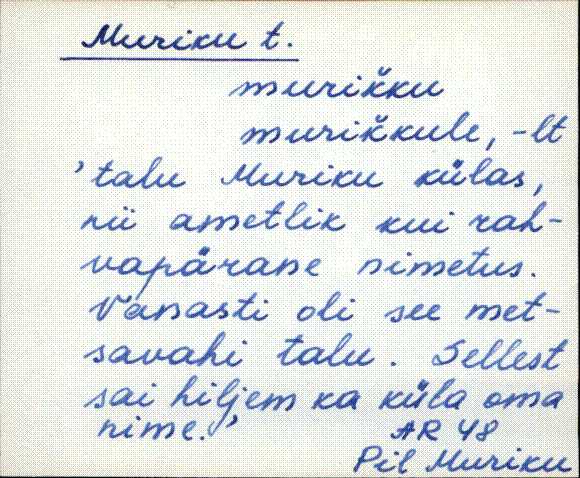 Muriku t.
murikku
murikkule, -lt
'talu Muriku külas,
nii ametlik kui rah-
vapärane nimetus.
Vanasti oli see met-
savahi talu. Sellest
sai hiljem ka küla oma
nime.'
AR 48
Pil Muriku